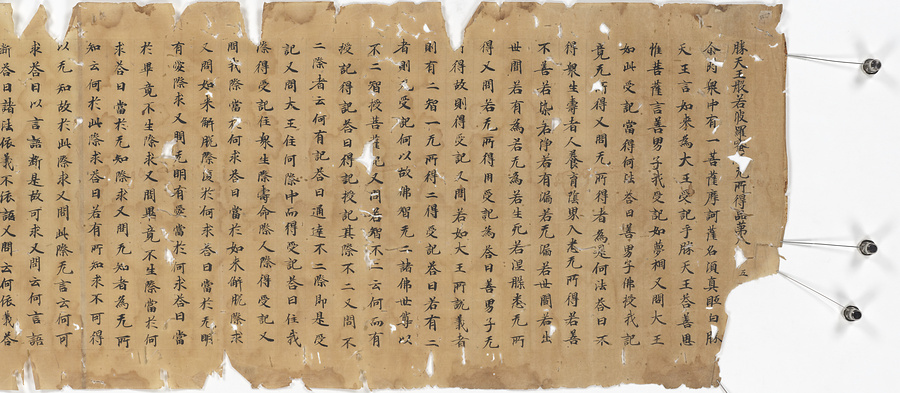 勝天王般若波羅蜜 无所得品第八 五
尒時衆中有一菩薩摩訶薩名須真胝白勝
天王言如來為大王受記乎勝天王荅善思
惟菩薩言善男子我受記如夢相又問大王
如此受記當得何法荅曰善男子佛授我記
竟无所得又問无所得者為是何法荅曰不
得衆生壽者人養育陰界入悉无所得若善
不善若染若淨若有漏若无漏若世間若出
世間若有為若无為若生死若涅槃悉无所
得又問若无所得用受記為荅曰善男子无
所得故則得受記又問若如大王所說義者
則有二智一无所得二得受記荅曰若有二
者則无受記何以故佛智无二諸佛世尊以
不二智授菩薩記又問若智不二云何而有
授記得記荅曰得記授記其際不二又問不
二際者云何有記荅曰通達不二際即是受
記又問大王住何際中而得受記荅曰住我
際得受記住衆生際壽命際人際得受記又
問我際當於何求荅曰當於如來解脫際求
又問如來解脫際復於何求荅曰當於无明
有愛際求又問无明有愛當於何求荅曰當
於畢竟不生際求又問畢竟不生際當於何
求荅曰當於无知際求又問无知者為无所
知云何於此際求荅曰若有所知求不可得
以无知故於此際求又問此際无言云何可
求荅曰以言語斷是故可求又問云何言語
斷荅曰諸法依義不依語又問云何依義荅